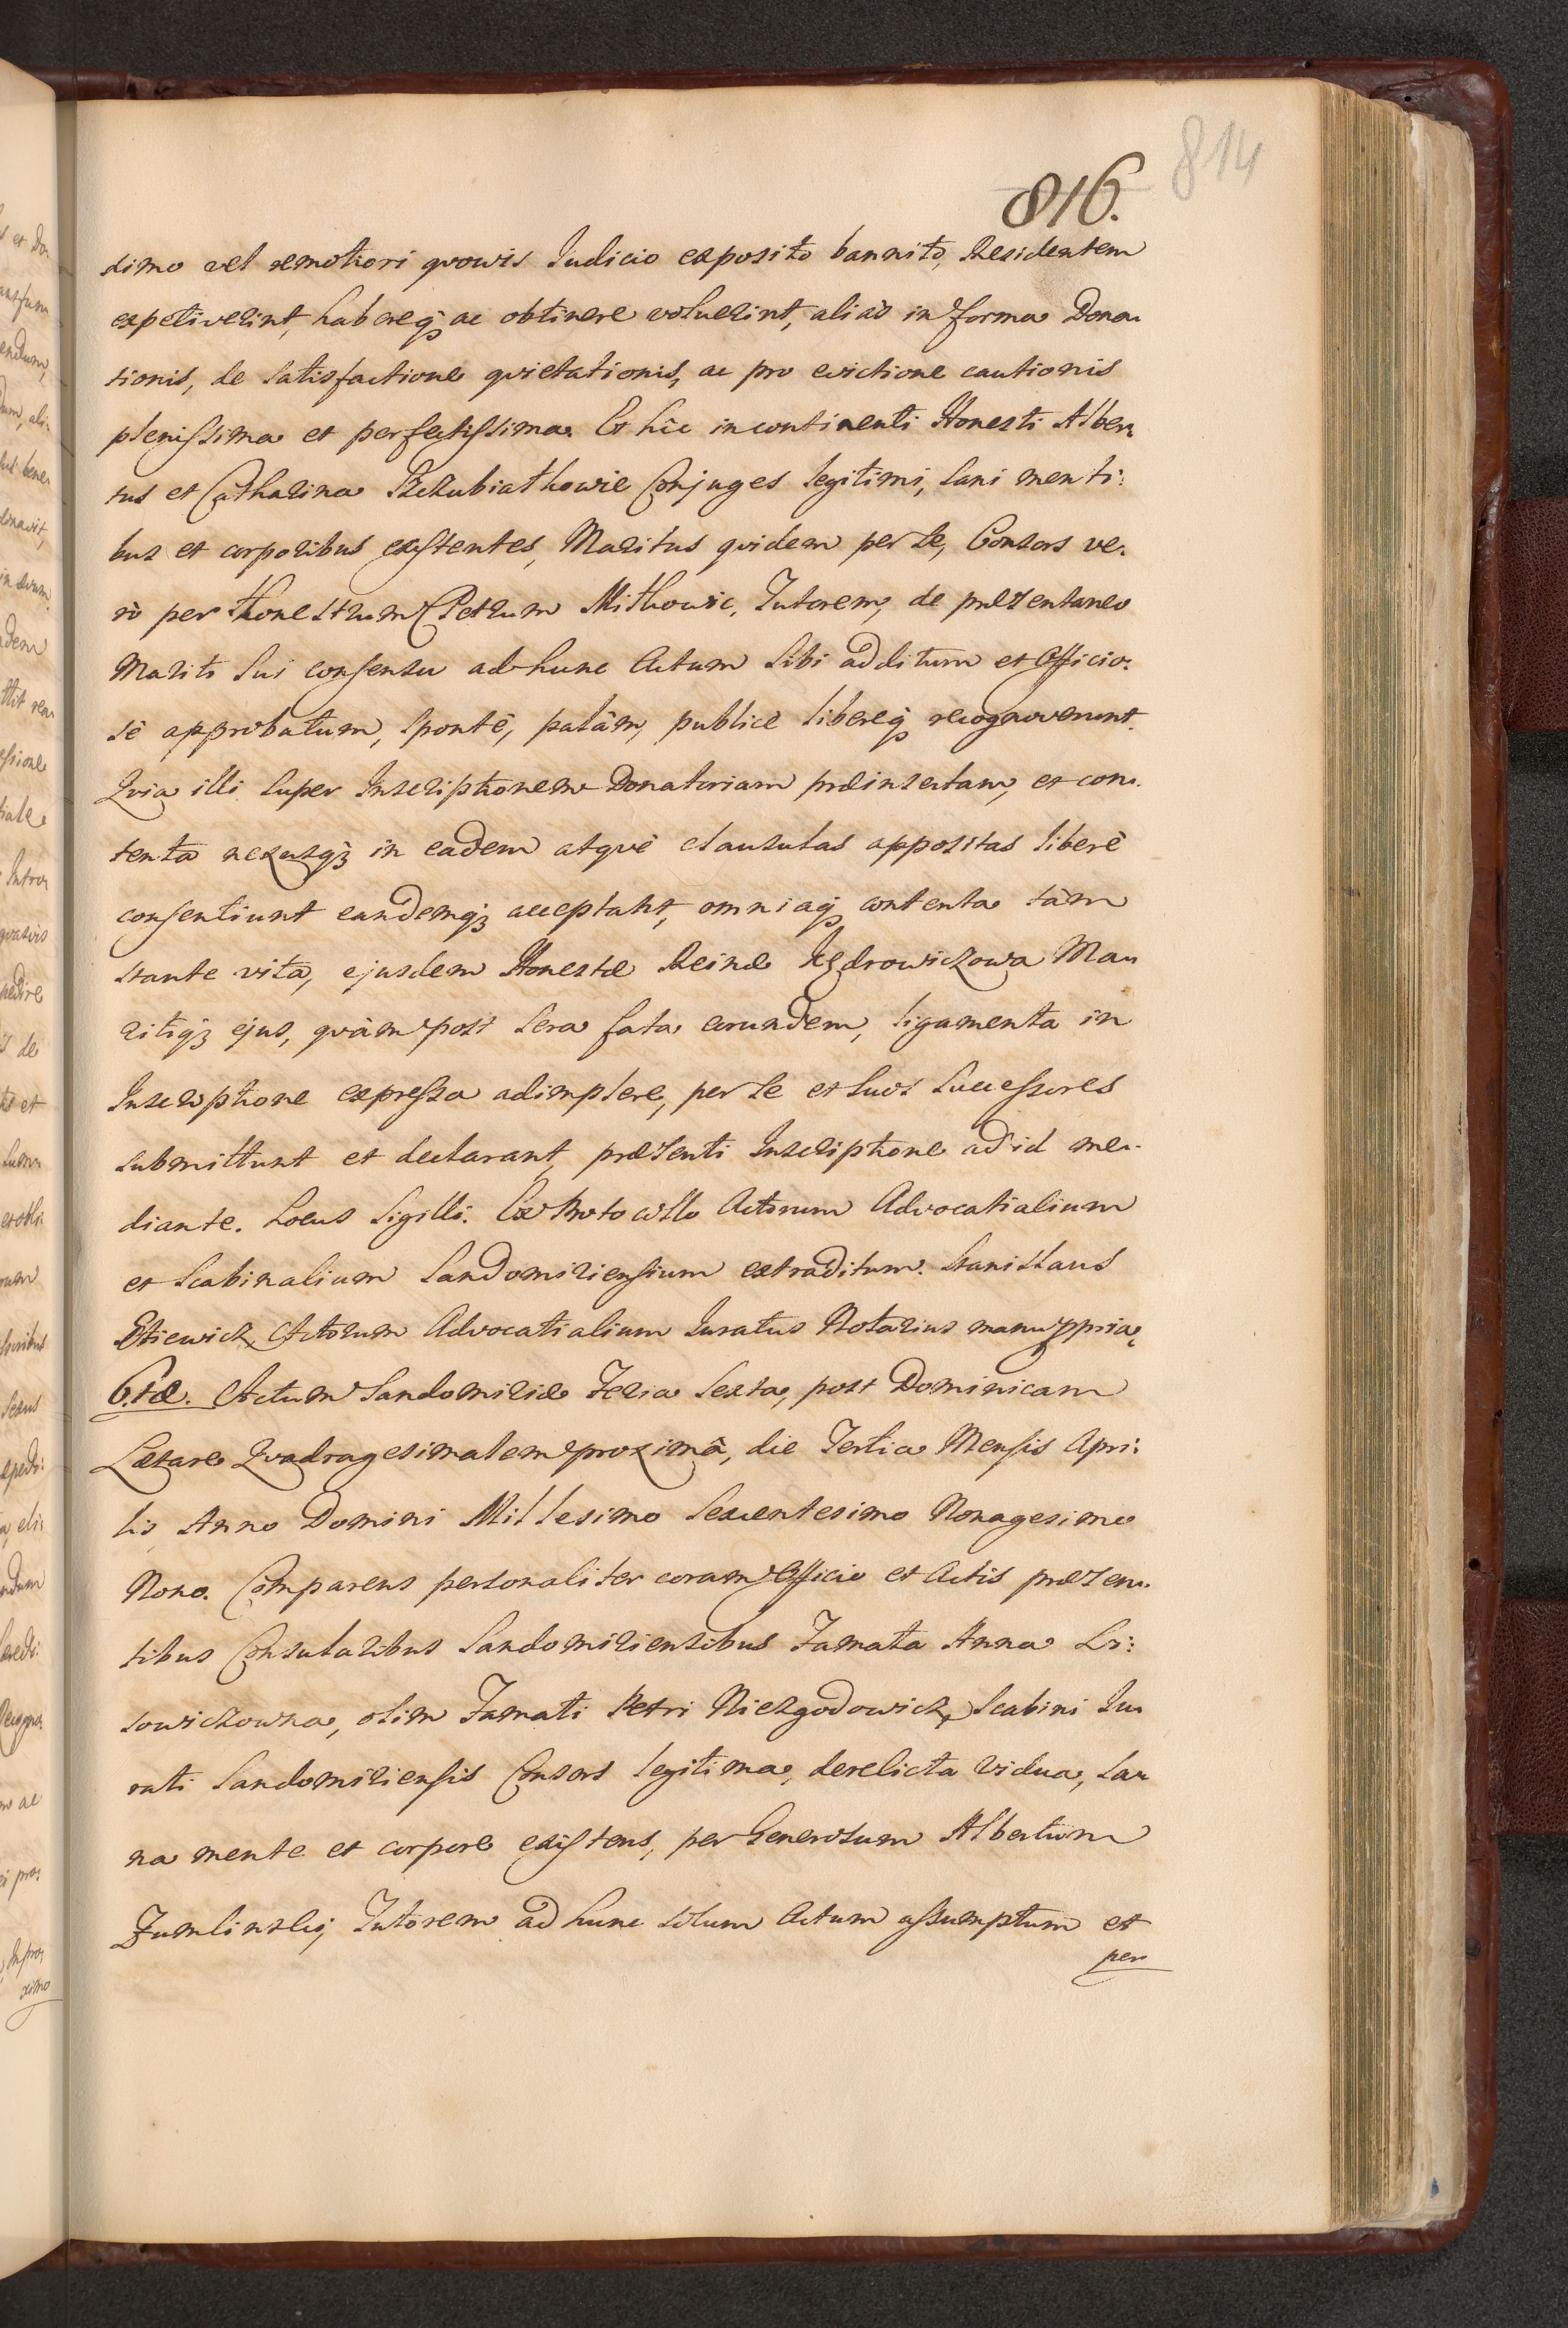 814
816.
ximo vel remotiori quovis Iudicio exposito bannito, Residentem
expetiverint, habereq; ac obtinere voluerint, aliàs in forma Dona-
tionis, de satisfactione quietationis, ac pro evictione cautionis
plenissima et perfectissima. Et hîc incontinenti Honesti Alber-
tus et Catharina Rzekubiathowie Conjuges legitimi, sani menti:
bus et corporibus existentes, Maritus quidem per se, Consors ve-
rò per Honestum Petrum Mithowic, Tutorem, de præsentaneo
Mariti sui consensu ad hunc Actum sibi additum et Officio:
sè approbatum, spontè, palàm, publicè libereq; recognoverunt.
Quia illi super Inscriptionem Donatoriam præinsertam, et con-
tenta nexusq; in eadem atquè clausulas appositas liberè
consentiunt eandemq; acceptant, omniaq; contenta tàm
stante vita, ejusdem Honestæ Reinæ Jędrowiczowa Ma-
ritiq; ejus, quàm post sera fata eorundem, ligamenta in
Inscriptione expressa adimplere, per se et suos Successores
submittunt et declarant, præsenti Inscriptione ad id me-
diante. Locus Sigilli. Ex Protocollo Actorum Advocatialium
et Scabinalium Sandomiriensium extraditum. Stanislaus
Actorum Advocatialium Iuratus Notarius manu ppria,
6.tæ. Actum Sandomiriæ Feria Sexta, post Dominicam
Lætare Quadragesimalem proximâ, die Tertia Mensis Apri:
lis Anno Domini Millesimo Sexcentesimo Nonagesimo
Nono. Comparens personaliter coram Officio et Actis præsen-
tibus Consularibus Sandomiriensibus Famata Anna Li:
sowiczowna, olim Famati Petri Niezgodowicz, Scabini Iu-
rati Sandomiriensis Consors legitima, derelicta Vidua, sa-
na mente et corpore existens, per Generosum Albertum
Zumlinskij, Tutorem ad hunc solum Actum assumptum et
per